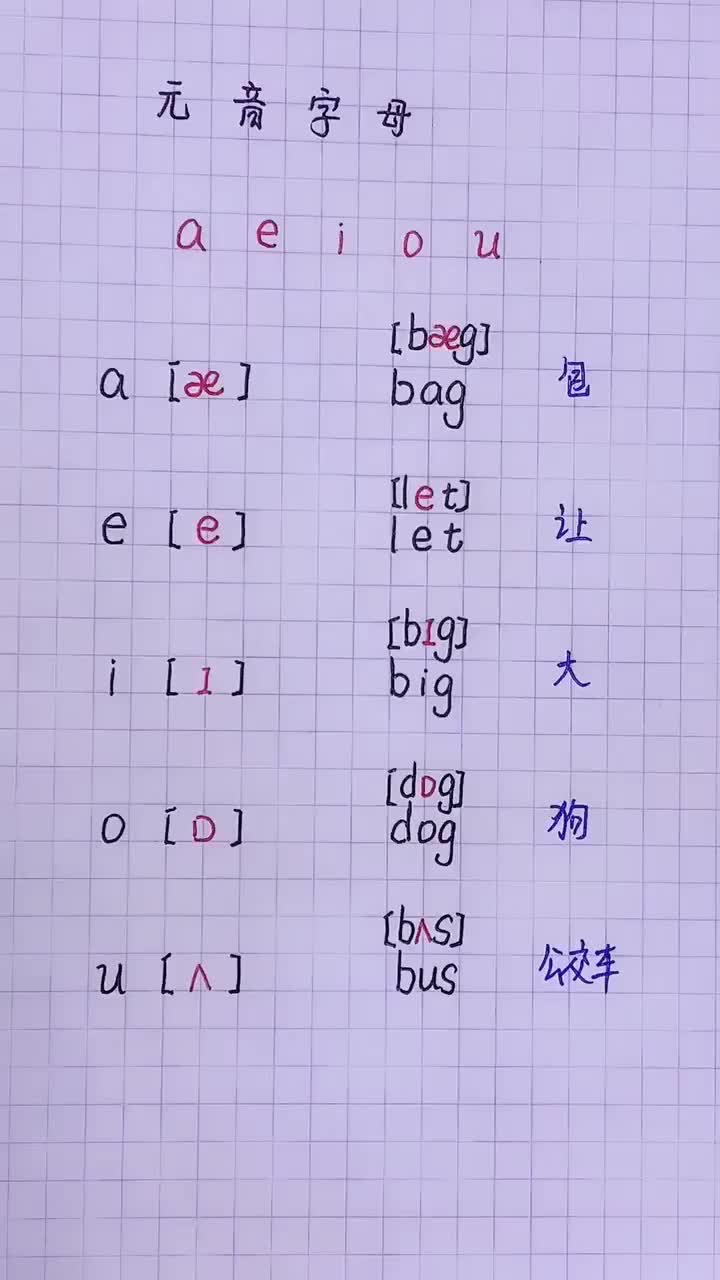 元音字母
a e i o u
[bæg]
a [æ] bag 包
[let]
e [e] let 让
[bɪg]
i [ɪ] big 大
[dɒg]
o [ɒ] dog 狗
[bʌs]
u [ʌ] bus 公交车